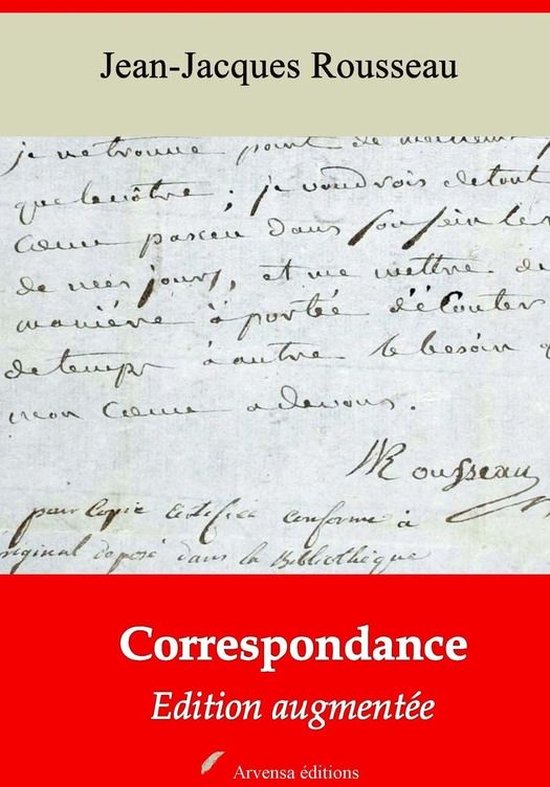 Jean-Jacques Rousseau
je ne trouve point de
que le nôtre; je voudrois de tout
Cœur passer dans son sein le
de mes jours, et me mettre de
maniére à portée d'écouter
de temps à autre le besoin q
mon Cœur a de vous.
JJRousseau
pour Copie certifiée conforme à
riginal déposé dans la Bibliothèque
Correspondance
Edition augmentée
Arvensa éditions